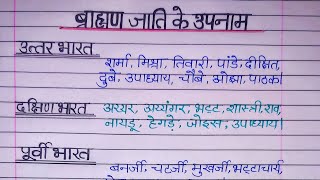 ब्राह्मण जाति के उपनाम
उत्तर भारत
शर्मा, मिश्रा, तिवारी, पांडे, दीक्षित,
दुबे, उपाध्याय, चौबे, ओझा, पाठक।
दक्षिण भारत
अय्यर, अय्यंगर, भट्ट, शास्त्री, राव,
नायडू, हेगड़े, जोइस, उपाध्याय।
पूर्वी भारत
बनर्जी, चटर्जी, मुखर्जी, भट्टाचार्य,